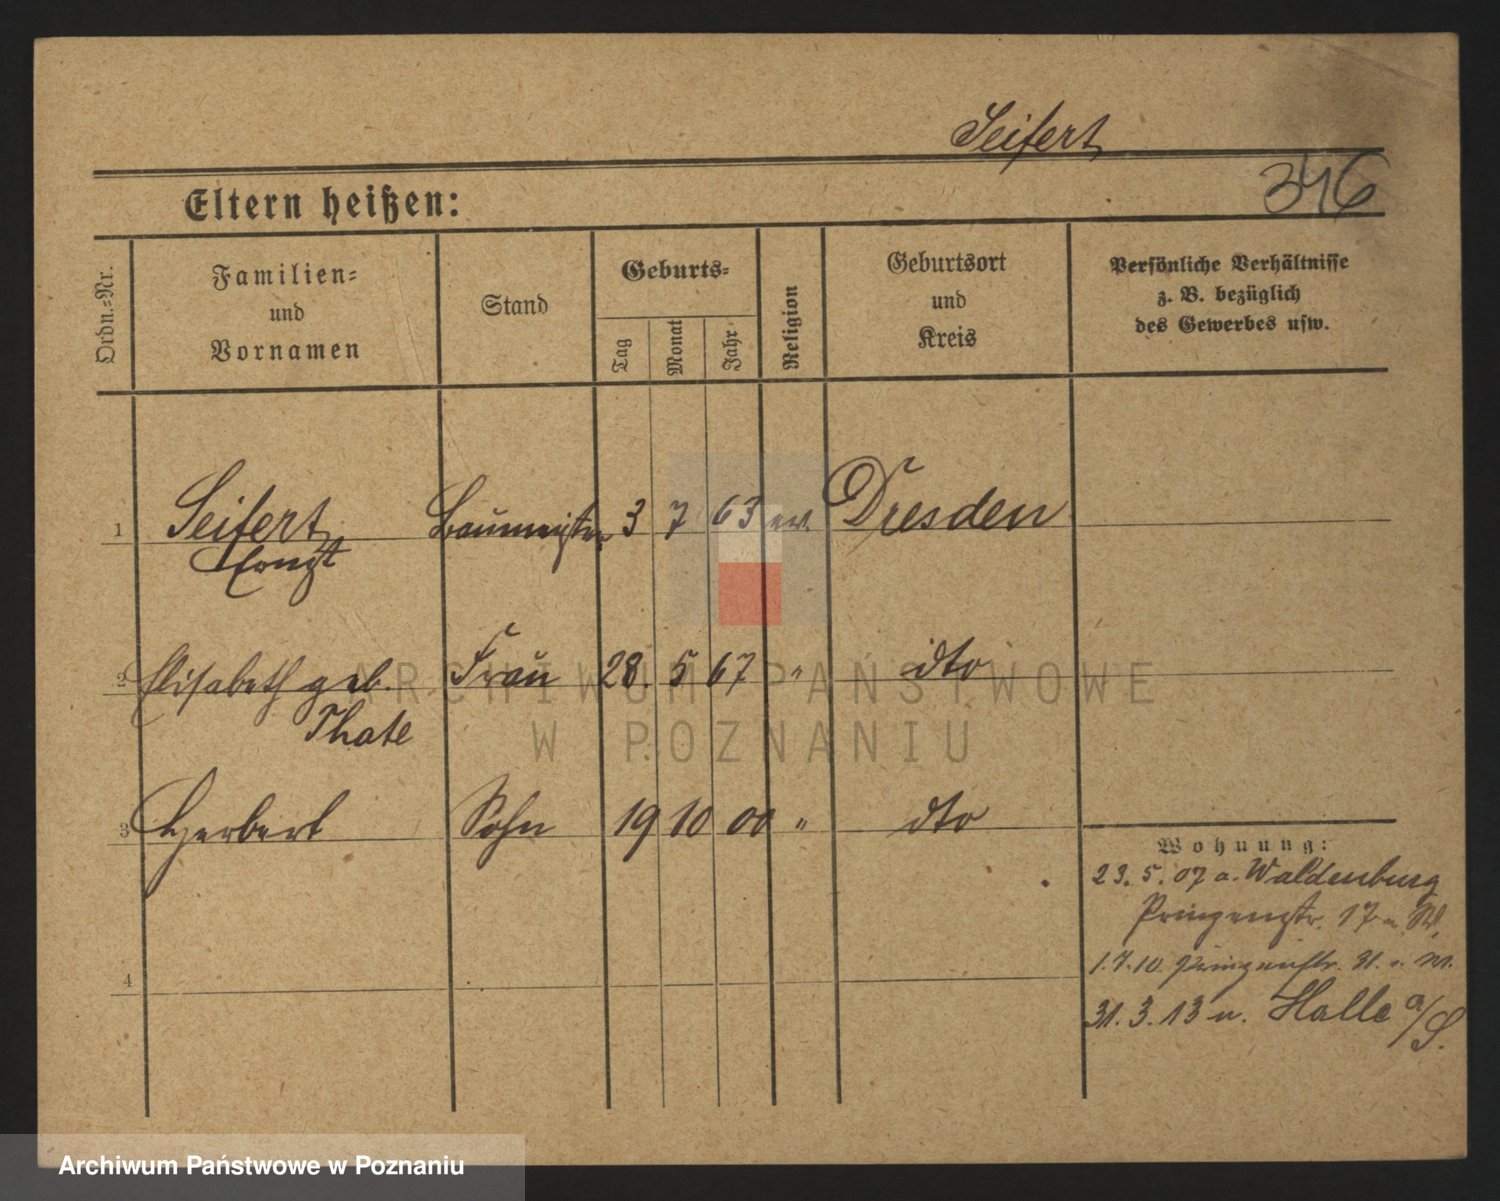 Seifert
346
Eltern heißen:
Ordn.-Nr.
Familien-
und
Vornamen
Stand
Geburts-
Tag
Monat
Jahr
Religion
Geburtsort
und
Kreis
Persönliche Verhältnisse
z. B. bezüglich
des Gewerbes usw.
1 Seifert Baumeister 3 7 63 ev. Dresden
Ernst
2 Elisabeth geb. Frau 28. 5 67 " dto
Thate
3 Herbert Sohn 19 10 00 " dto
4
Wohnung:
23. 5. 07 a. Waldenburg
Prinzenstr. 17
1.7.10. Prinzenstr. 31.
31. 3. 13 n. Halle a/S.
ARCHIWUM PAŃSTWOWE
W POZNANIU
Archiwum Państwowe w Poznaniu